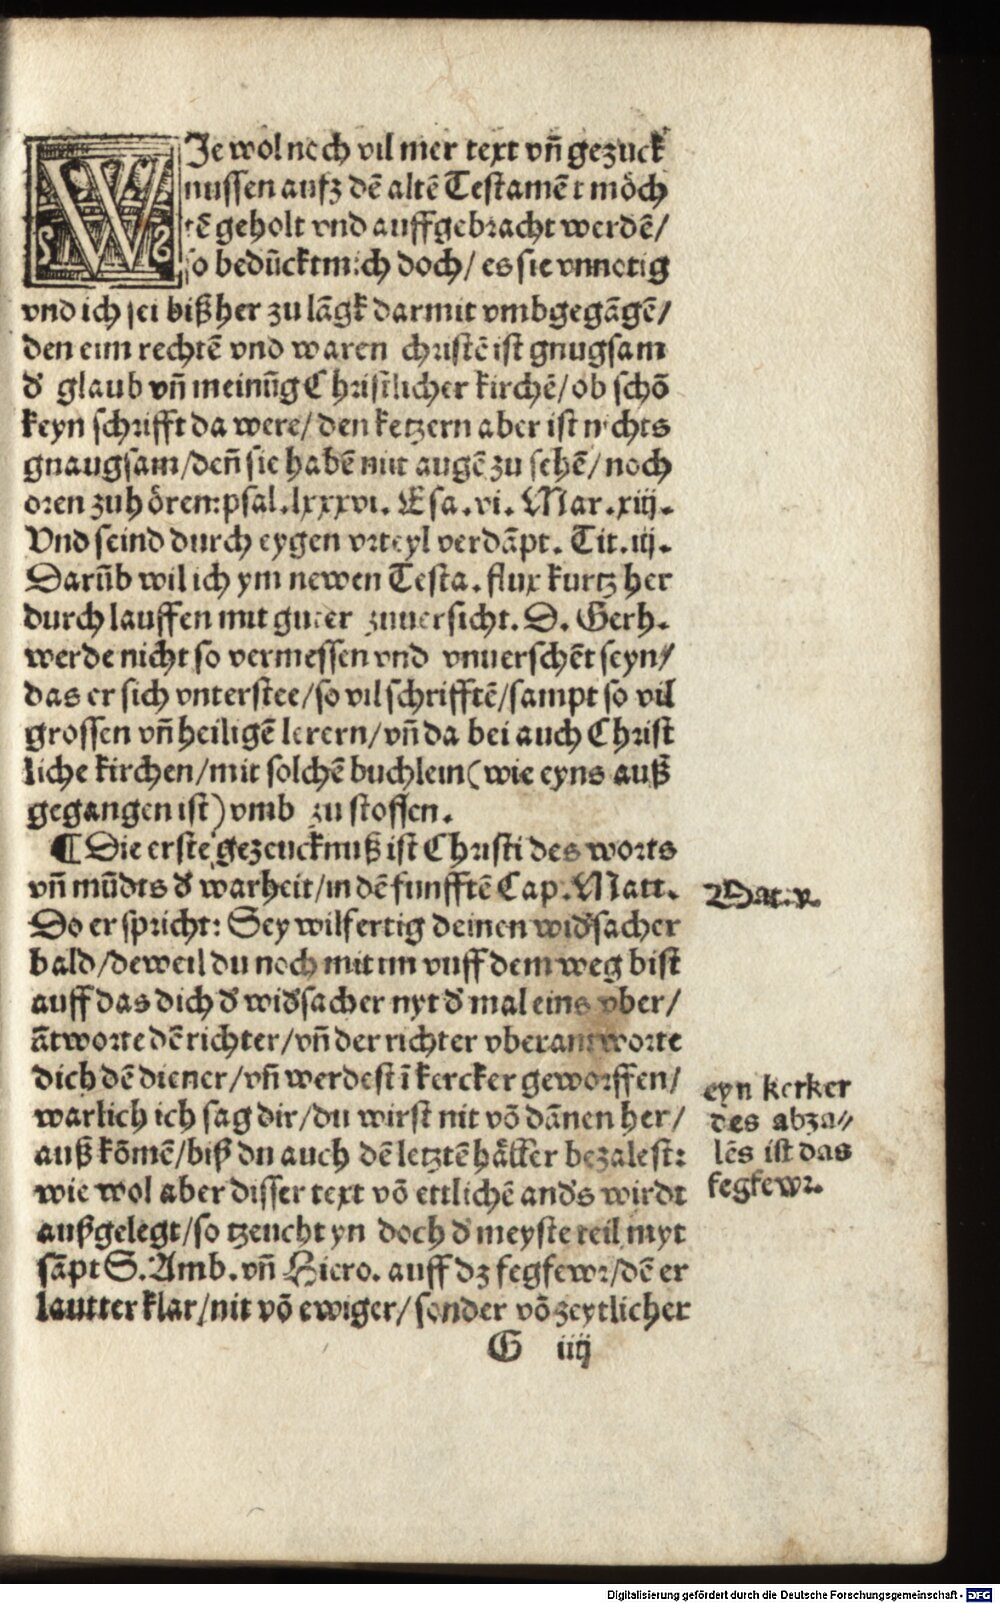 WJe wol noch vil mer text vñ gezuck
nussen aufz dē altē Testamēt möch
tē geholt vnd auffgebracht werdē/
so bedūckt mich doch/ es sie vnnotig
vnd ich sei bißher zu lāgk darmit vmbgegāgē/
den eim rechtē vnd waren christē ist gnugsam
d' glaub vñ meinūg Christlicher kirchē/ ob schō
keyn schrifft da were/ den ketzern aber ist nichts
gnaugsam/ deñ sie habē nit augē zu sehē/ noch
oren zu hören: psal. lxxxvi. Esa. vi. Mar. xiij.
Vnd seind durch eygen vrteyl verdāpt. Tit. iij.
Darūb wil ich ym newen Testa. flux kurtz her
durch lauffen mit guter zuuersicht. D. Gerh.
werde nicht so vermessen vnd vnuerschēt seyn/
das er sich vnterstee/ so vil schrifftē/ sampt so vil
grossen vñ heiligē lerern/ vñ da bei auch Christ
liche kirchen/ mit solchē buchlein (wie eyns auß
gegangen ist) vmb zu stossen.
¶ Die erste gezeucknuß ist Christi des worts
vñ mūdts d' warheit/ in dē funfftē Cap. Matt.
Do er spricht: Sey wilfertig deinen wid'sacher
bald/ deweil du noch mit im vuff dem weg bist
auff das dich d' wid'sacher nyt d' mal eins vber/
ātworte dē richter/ vñ der richter vberantworte
dich dē diener/ vñ werdest ī kercker geworffen/
warlich ich sag dir/ du wirst nit vō dānen her/
auß kōmē/ biß du auch dē letztē häller bezalest:
wie wol aber disser text vō ettlichē and's wirdt
außgelegt/ so tzeucht yn doch d' meyste teil myt
sāpt S. Amb. vñ Hiero. auff dz fegfewr/ dē er
lautter klar/ nit vō ewiger/ sonder vō zeytlicher
G iiij
Mat. v.
eyn kerker
des abza//
lēs ist das
fegfewr.
Digitalisierung gefördert durch die Deutsche Forschungsgemeinschaft - DFG